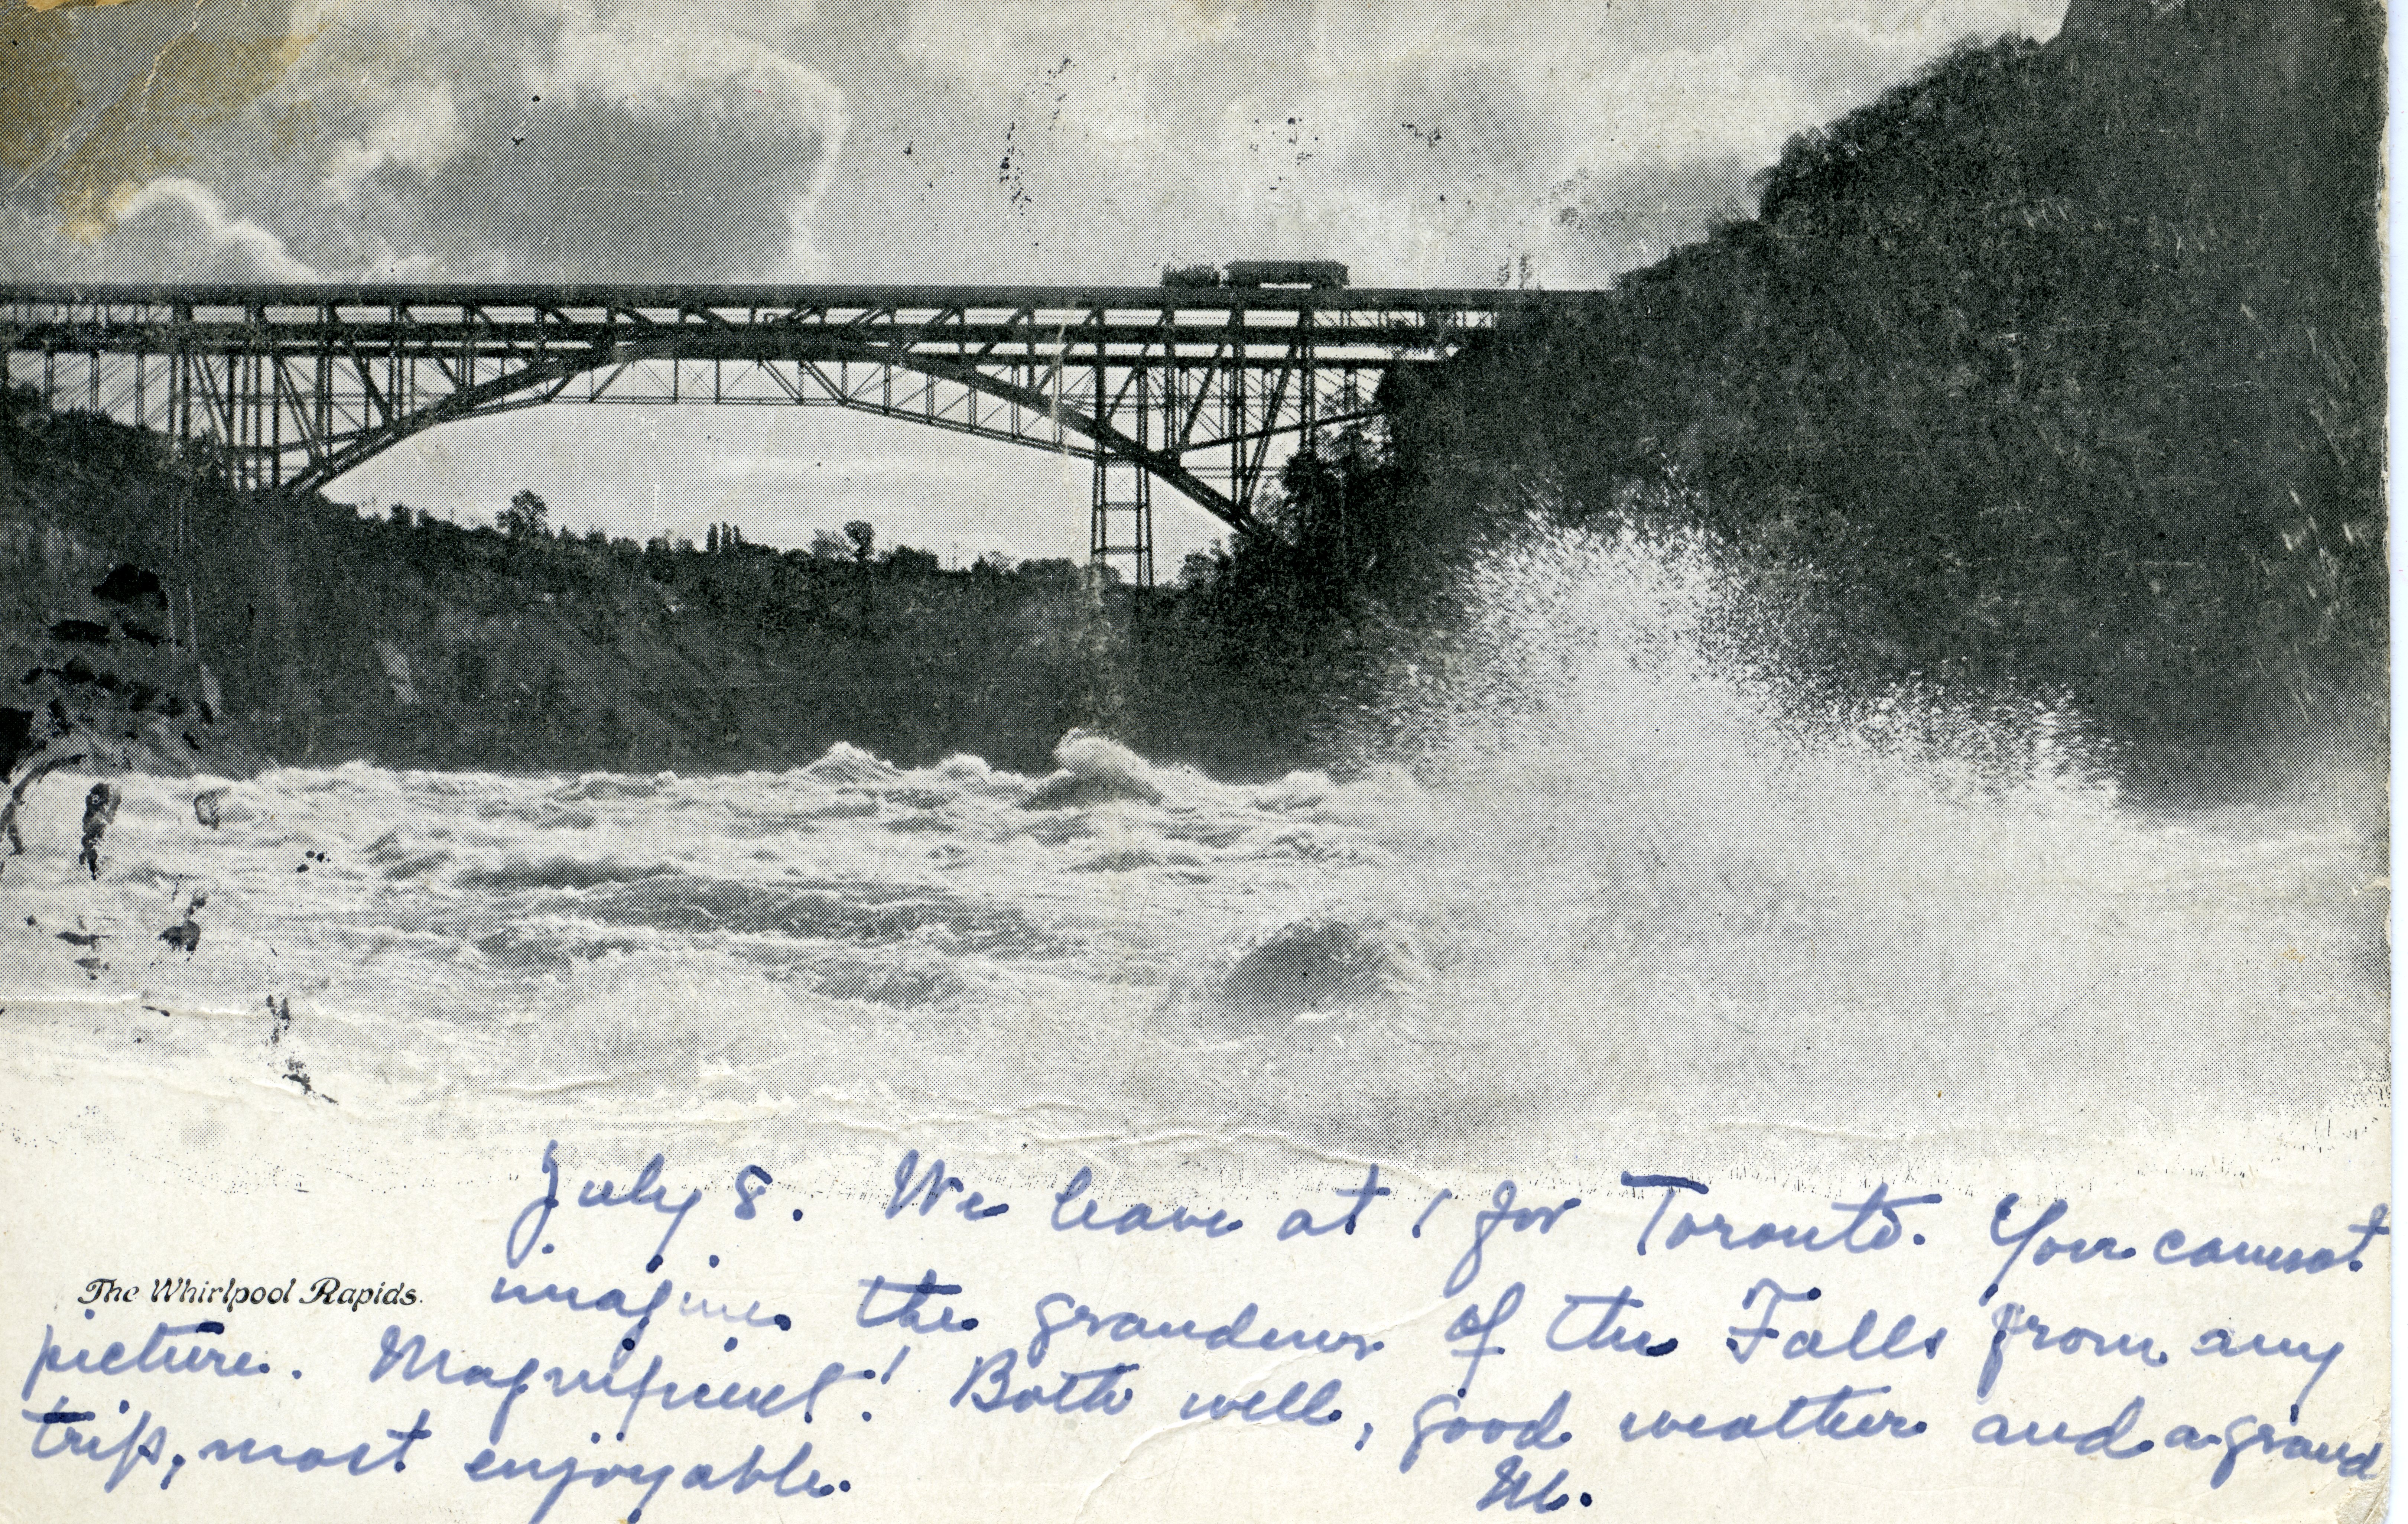 July 8. We leave at 1 for Toronto. You cannot
The Whirlpool Rapids.
imagine the grandeur of the Falls from any
picture. Magnificent! Both well, good weather and a grand
trip, most enjoyable.
M.